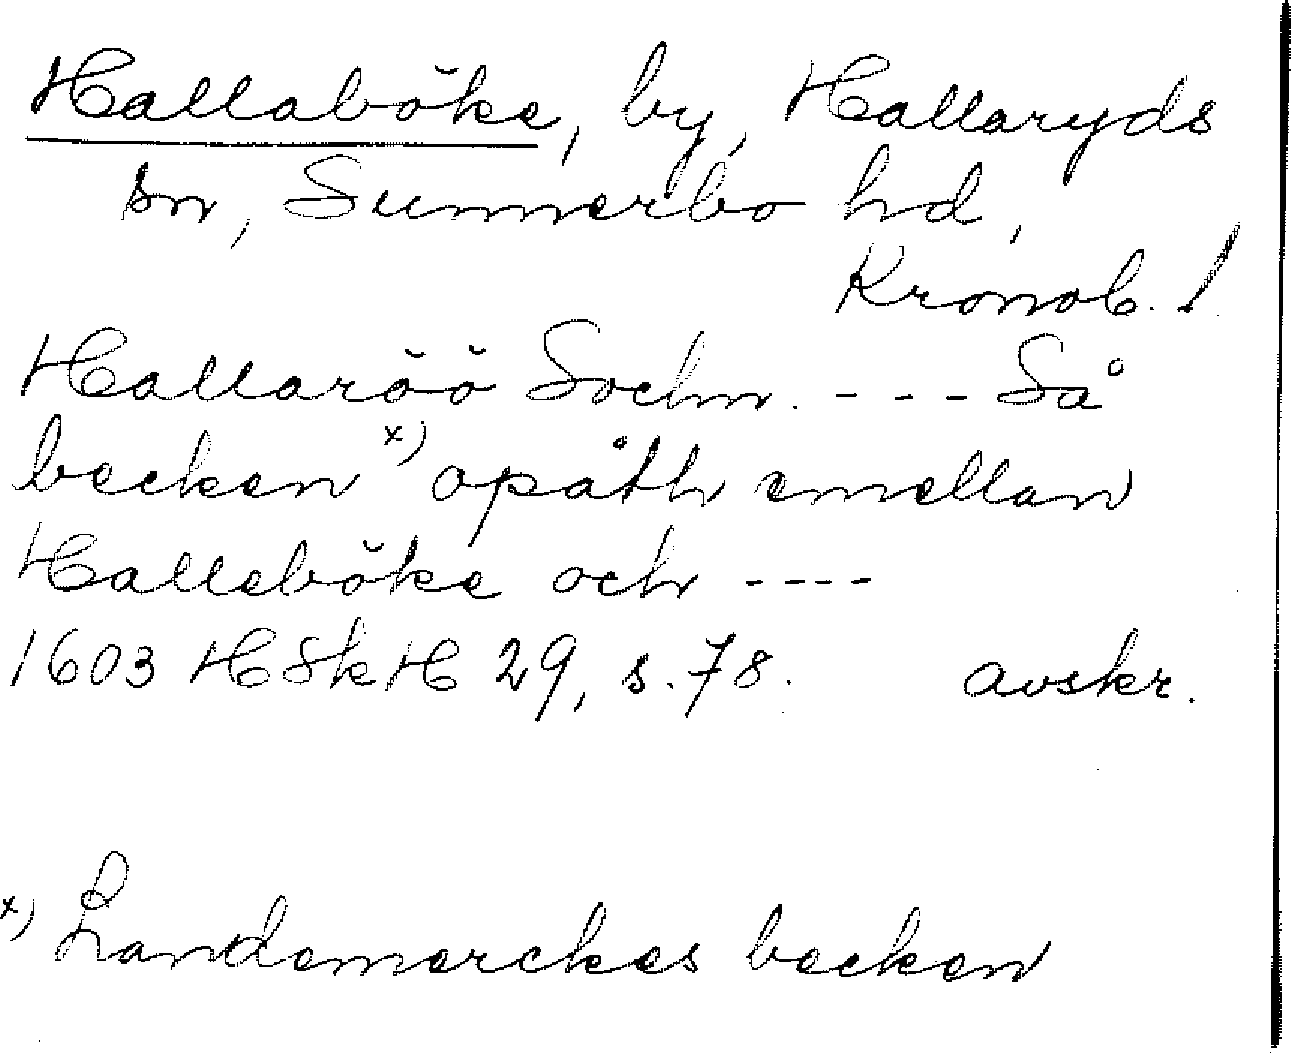 Hallaböke, by, Hallaryds
sn, Sunnerbo hd,
Kronob. l
Hallaröö Sochn. - - - Så
becken x) opåth emellan
Halleböke och - - - -
1603 HSkH 29, s. 78. avskr.
x) Landemerckes becken